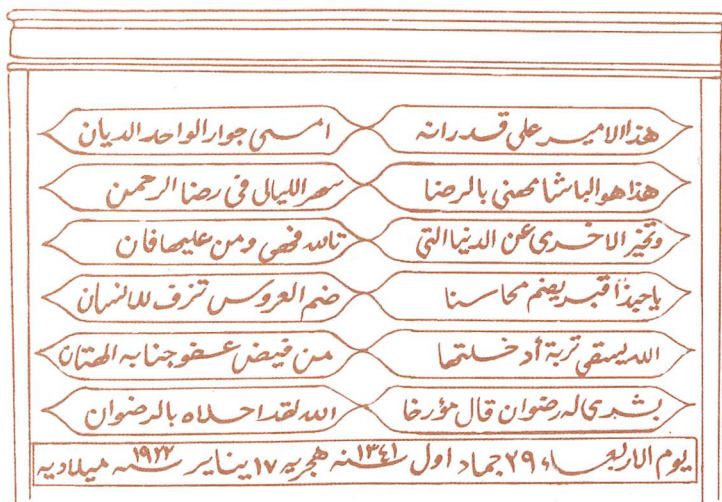 هذا الامير على قدرانه امسى جوار الواحد الديان
هذا هو الباشا مهنى بالرضا سهر الليالى فى رضا الرحمن
وتخير الاخرى عن الدنيا التى تالله فهى ومن عليها فان
ياحبذا قبر يضم محاسنا ضم العروس تزف للانسان
الله يسقى تربة أدخلتها من فيض عفو جنابه الهتان
بشرى له رضوان قال مؤرخا الله لقد احلاه بالرضوان
يوم الاربعاء ٢٩ جماد اول سنه ١٣٤١ هجريه ١٧ يناير سنه ١٩٢٢ ميلاديه